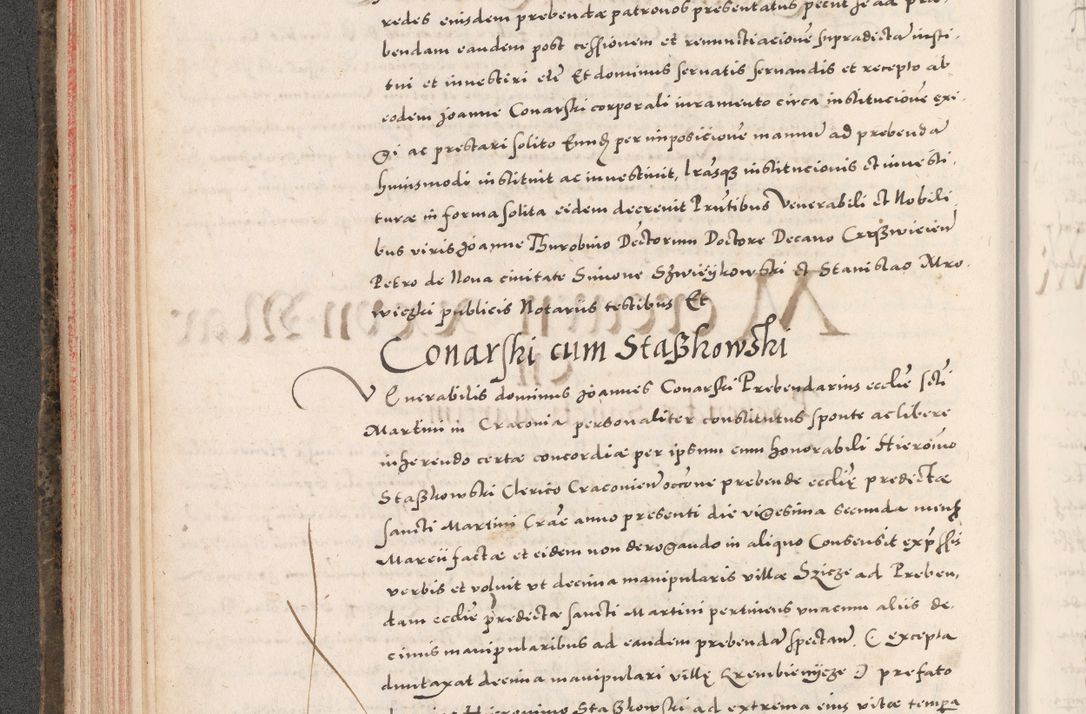 redes eiusdem prebendæ patronos presentatus petiit se ad pre-
bendam eandem post cessionem et renunctiacione supradicta insti-
tui et investiri etc Et dominus servatis servandis et recepto ab
eodem Joanne Conarski corporali iuramento circa institucione exi-
gi ac prestari solito Eundq per imposicione manuu ad prebenda
huiusmodi instituit ac investivit, lrasq institucionis et investi-
turæ in forma solita eidem decrevit Pntibus Venerabili et Nobili-
bus viris Joanne Thurobino Doctorum Doctore Decano
Petro de Nova civitate Simone Szwieykowski et Stanislao Mro-
wieski publicis Notariis testibus Et
Conarski cum Staßkowski
Venerabilis dominus Joannes Conarski Prebendarius ecclie scti
Martini in Cracovia personaliter constitutus sponte ac libere
inherendo certæ concordiæ per ipsum cum honorabili Hieronimo
Staßkowski Clerico Cracovien occone prebende ecclie predictæ
sancti Martini Crac anno presenti die vigesima secunda mens
Marcii factæ et eidem non derogando in aliquo Consensit expssis
verbis et voluit vt decima manipularis villæ ad Preben-
dam ecclie predictæ sancti Martini pertinens vnacum aliis de-
cimis manipularibus ad eandem prebenda spectan. ( excepta
duntaxat decima manipulari villę ) prefato
Hieronimo Staßkowski ad extrema eius vitæ tempora